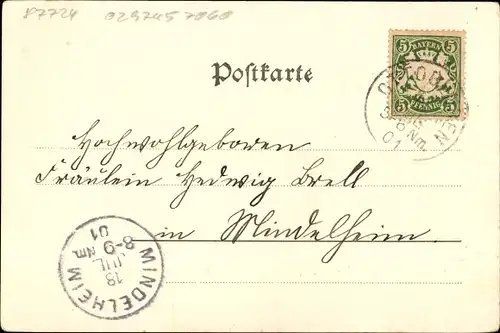 87724 0297457060
Postkarte
BAYERN
5 5
5 5
PFENNIG
Nm.
01
Hochwohlgeboren
Fräulein Hedwig Brell
in Mindelheim.
MINDELHEIM
18
JUL
Nm
8-9
01